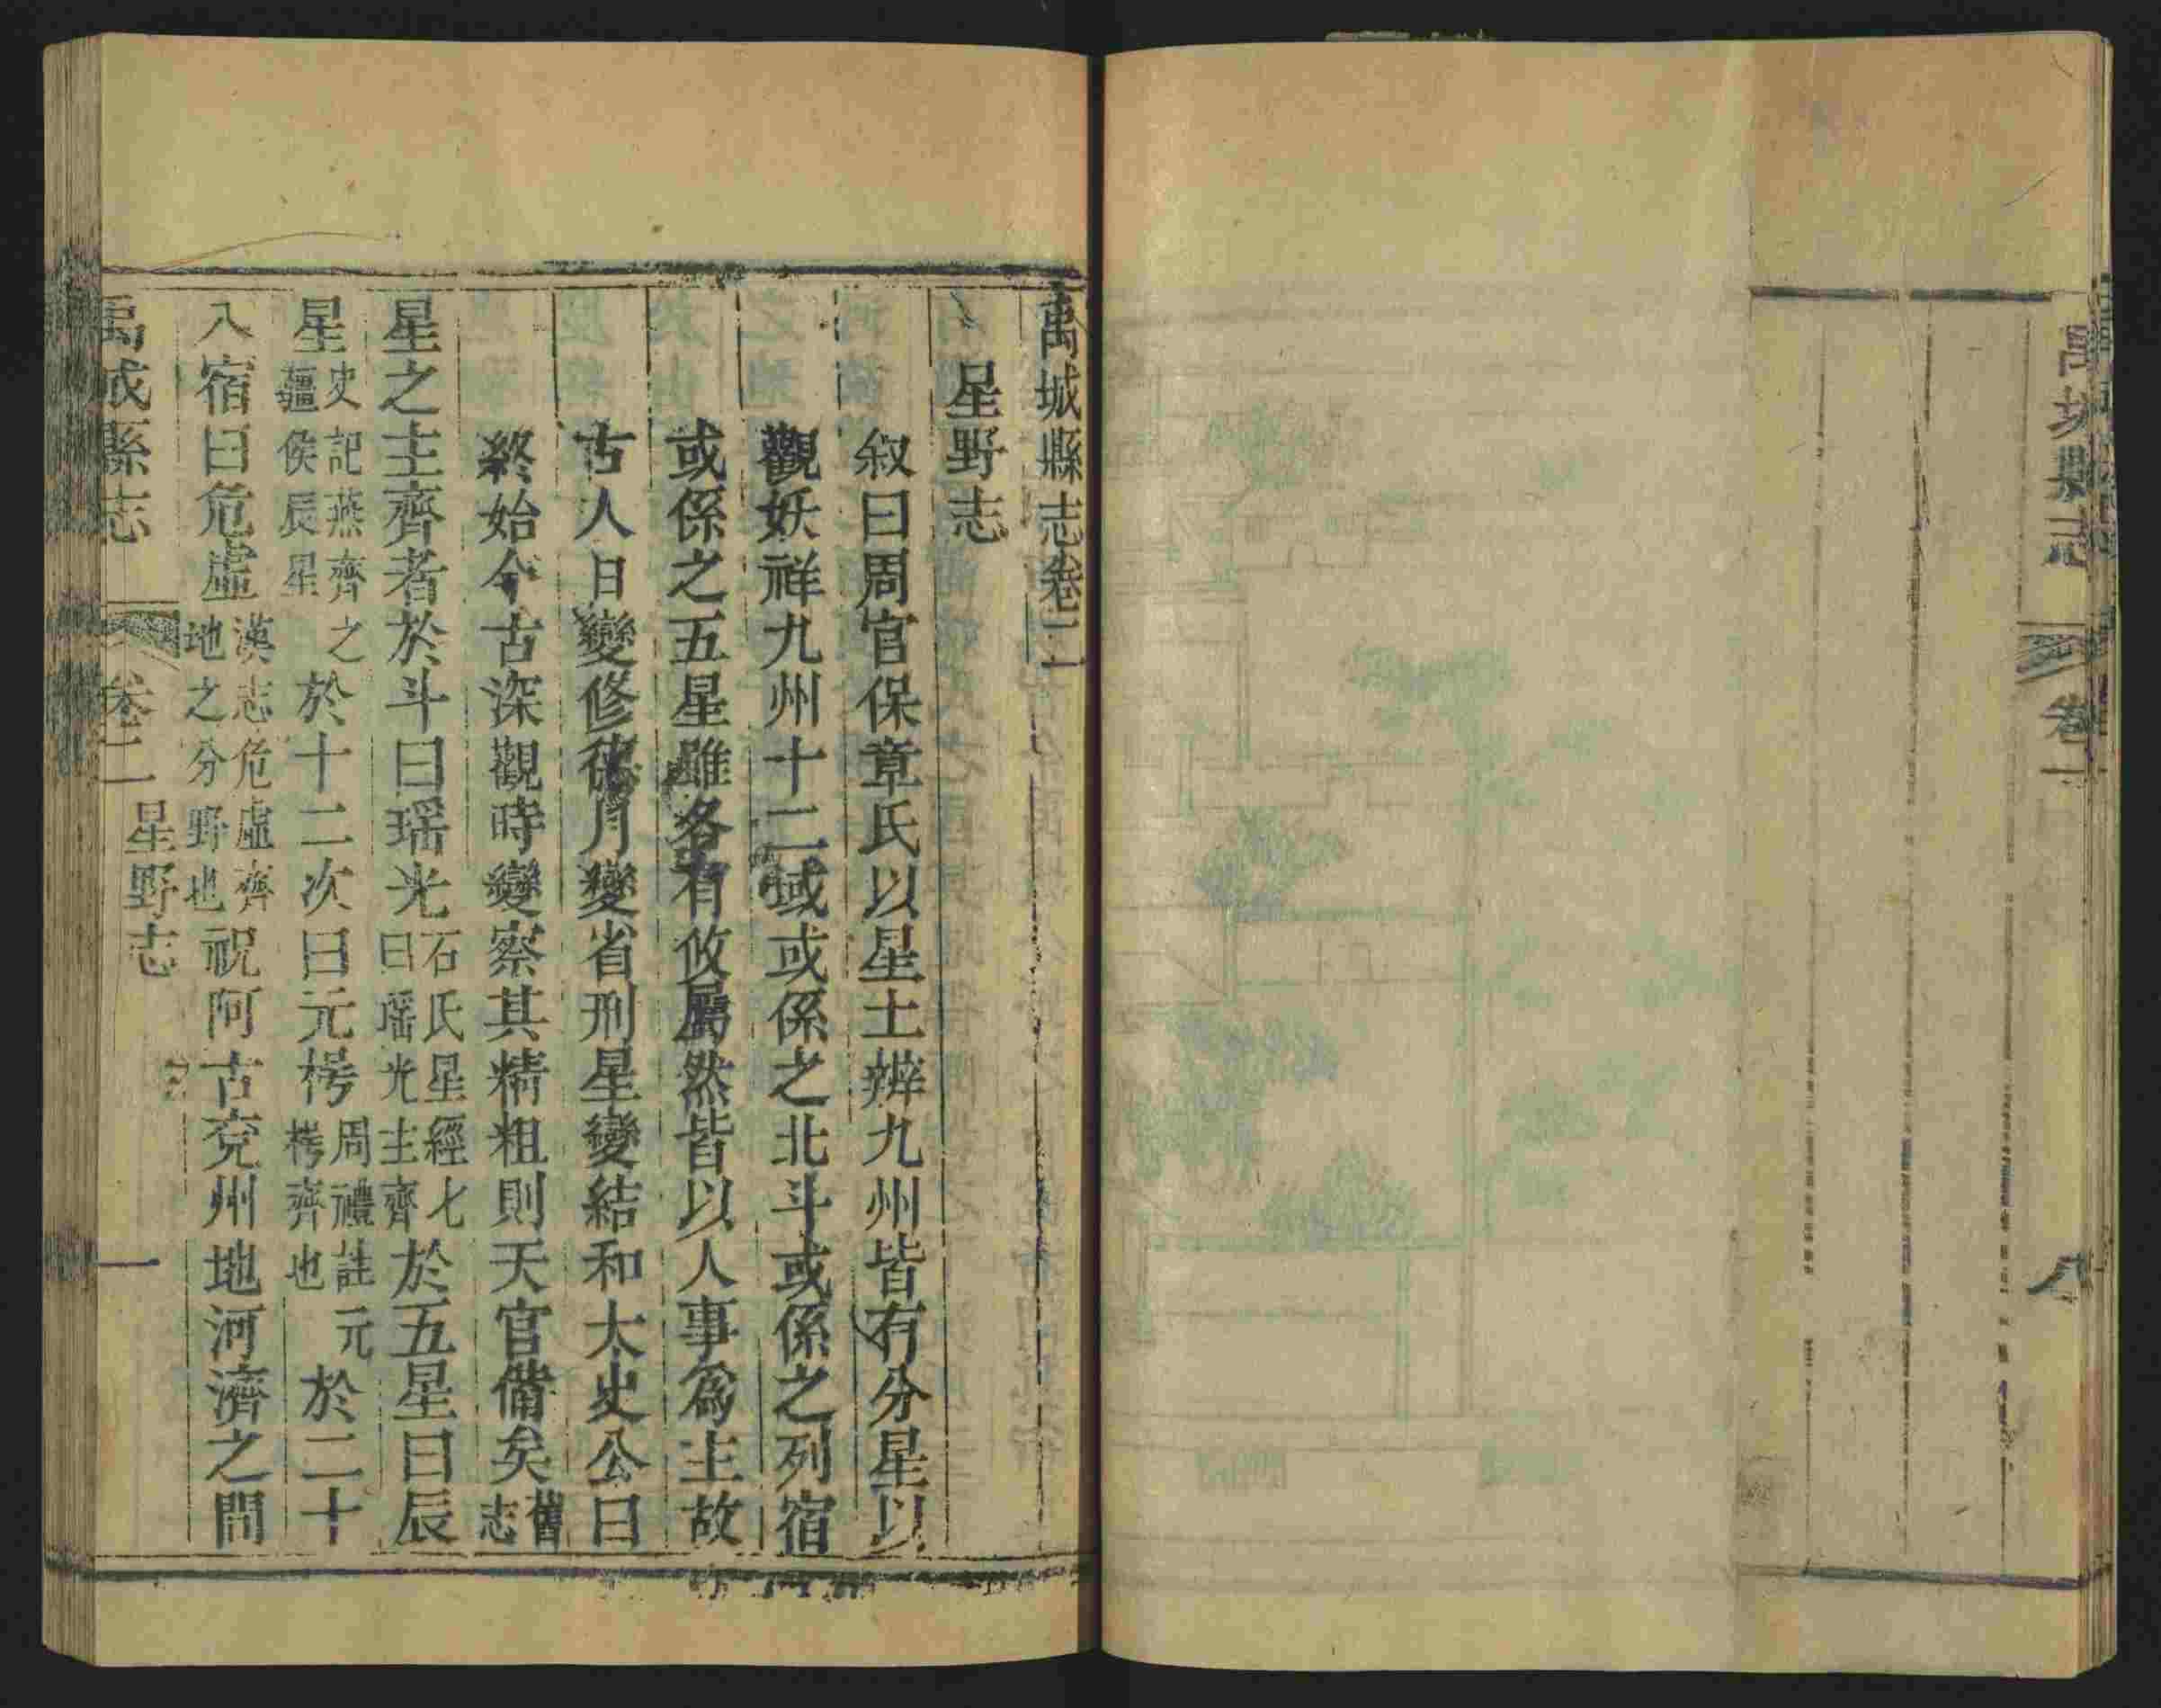 禹城縣志
卷一
八
禹城縣志卷二
星野志
叙曰周官保章氏以星土辨九州皆有分星以
觀妖祥九州十二域或係之北斗或係之列宿
或係之五星雖各有攸屬然皆以人事為主故
古人日變修德月變省刑星變結和太史公曰
終始今古深觀時變察其精粗則天官備矣舊志
星之主齊者於斗曰瑤光石氏星經七曰瑤光主齊於五星曰辰
星史記燕齊之疆侯辰星於十二次曰元枵周禮註元枵齊也於二十
八宿曰危虛漢志危虛齊地之分野也祝阿古兗州地河濟之間
禹城縣志
卷二
星野志
一